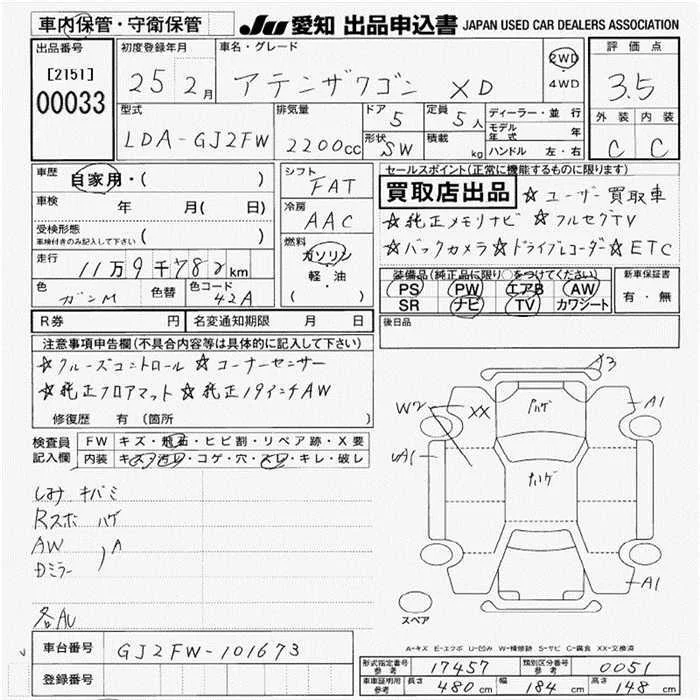 車内保管・守衛保管 JU愛知 出品申込書 JAPAN USED CAR DEALERS ASSOCIATION
出品番号 初度登録年月 車名・グレード 評価点
[2151] 25 2月 アテンザワゴン XD 2WD・4WD 3.5
00033
型式 排気量 ドア 5 定員 5人 ディーラー・並行 外装 内装
LDA-GJ2FW 2200cc 形状 SW 積載 kg モデル年式 年 C C
ハンドル 左・右
車歴 自家用・( ) シフト FAT セールスポイント(正常に機能するものに限ります)
車検 年 月( 日) 冷房 AAC 買取店出品 ☆ユーザー買取車
受検形態 車検付きのみ記入して下さい ( ) ☆純正メモリナビ ☆フルセグTV
走行 11万9千782km 燃料 ガソリン 軽・油 ( ・ ) ☆バックカメラ☆ドライブレコーダー☆ETC
色 ガンM 色替 色コード 42A 装備品(純正品に限り○をつけてください) 新車保証書
PS PW エアB AW 有・無
SR ナビ TV カワシート
R券 円 名変通知期限 月 日 後日品
注意事項申告欄(不具合内容等は具体的に記入して下さい)
☆クルーズコントロール ☆コーナーセンサー
☆純正フロアマット ☆純正19インチAW
修復歴 有 (箇所 )
検査員記入欄 FW キズ・飛石・ヒビ割・リペア跡・X要
内装 キズ・汚レ・コゲ・穴・スレ・キレ・破レ
しみ キバミ
Rスポ ハゲ
AW
Dミラー ) A
各AU
X3
W2 XX ハゲ A1
UA1 ハゲ
A1
スペア
A-キズ E-エクボ U-凹み W-補修跡 S-サビ C-腐食 XX-交換済
車台番号 GJ2FW-101673
登録番号
形式指定番号 参考 17457 類別区分番号 参考 0051
車車証明用 参考 長さ 480cm 幅 184cm 高さ 148cm